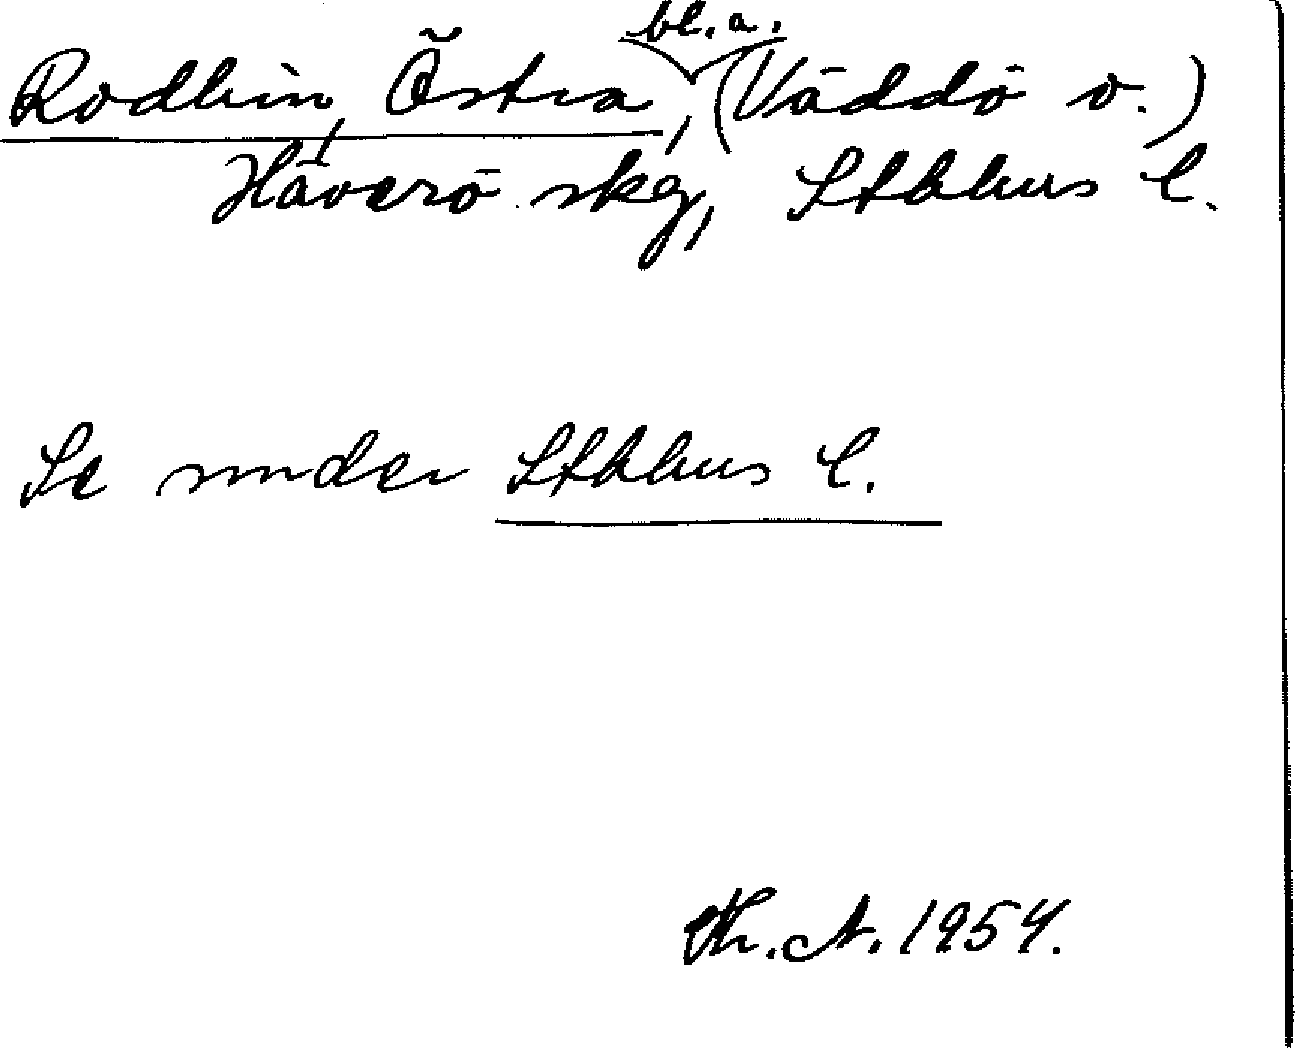 bl. a.
Rodhin, Östra, (Väddö o.)
Häverö skg, Sthlms l.
Se under Sthlms l.
Th. A. 1954.